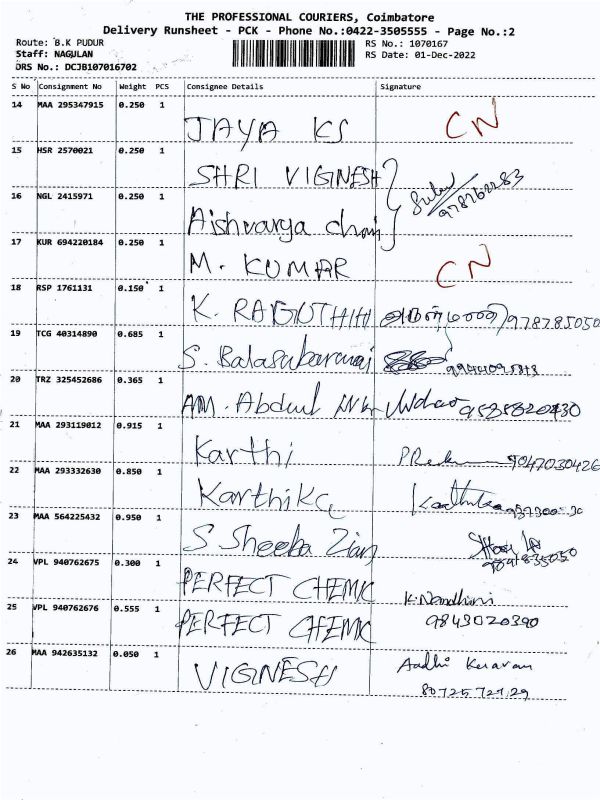 THE PROFESSIONAL COURIERS, Coimbatore
Delivery Runsheet - PCK - Phone No.:0422-3505555 - Page No.:2
Route: B.K PUDUR RS No.: 1070167
Staff: NAGULAN RS Date: 01-Dec-2022
DRS No.: DCJB107016702
S No Consignment No Weight PCS Consignee Details Signature
14 MAA 295347915 0.250 1 JAYA KS CN
15 HSR 2570021 0.250 1 SHRI VIGNESH
16 NGL 2415971 0.250 1 Aishvarya
17 KUR 694220184 0.250 1 M. KUMAR CN
18 RSP 1761131 0.150 1 K. RAGUTHIH
19 TCG 40314890 0.685 1
20 TRZ 325452686 0.365 1 AM. Abdul
21 MAA 293119012 0.915 1 Karthi 9047030426
22 MAA 293332630 0.850 1 Karthika
23 MAA 564225432 0.950 1 S Sheeba
24 VPL 940762675 0.300 1 PERFECT CHEMIC K. Nandhini
25 VPL 940762676 0.555 1 PERFECT CHEMIC 9843020390
26 MAA 942635132 0.050 1 VIGNESH Aadhi